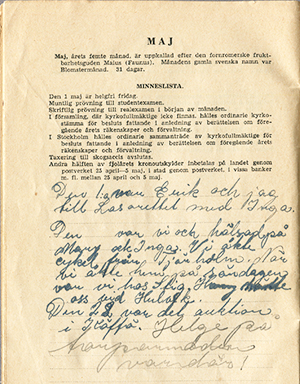 MAJ
Maj, årets femte månad, är uppkallad efter den fornromerske frukt-
barhetsguden Maius (Faunus). Månadens gamla svenska namn var
Blomstermånad. 31 dagar.
MINNESLISTA.
Den 1 maj är helgfri fridag.
Muntlig prövning till studentexamen.
Skriftlig prövning till realexamen i början av månaden.
I församling, där kyrkofullmäktige icke finnas, hålles ordinarie kyrko-
stämma för besluts fattande i anledning av berättelsen om före-
gående årets räkenskaper och förvaltning.
I Stockholm hålles ordinarie sammanträde av kyrkofullmäktige för
besluts fattande i anledning av berättelsen om föregående årets
räkenskaper och förvaltning.
Taxering till skogsaccis avslutas.
Andra hälften av fjolårets kronoutskylder inbetalas på landet genom
postverket 23 april—5 maj, i stad genom postverket, i vissa banker
m. fl. mellan 25 april och 5 maj.
Den 1:a var Erik och jag
till Lasarettet med Inga.
Den var vi och hälsad på
Mary och Inga. Vi åkte
cykel från holm. När
vi åkte hem på söndagen
var vi hos Stig.
oss vid
Den 22 var det auktion
i Helge på
var där!